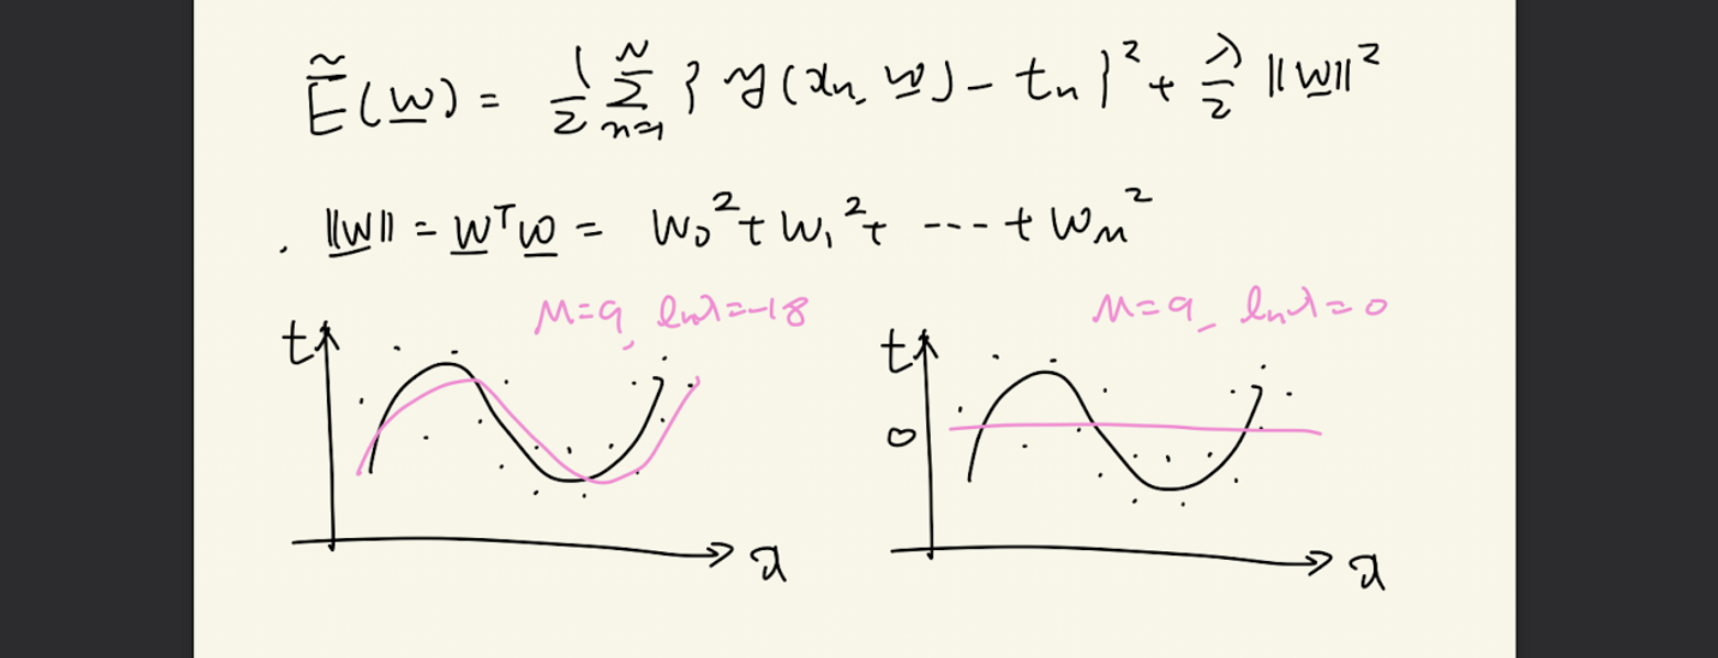 Ẽ(w) = 1/2 Σ_{n=1}^{N} { y(x_n, w) - t_n }² + λ/2 ||w||²
. ||w|| = wᵀw = w₀² + w₁² + ---- + w_M²
M=9, lnλ=-18
M=9, lnλ=0
t
t
0
x
x